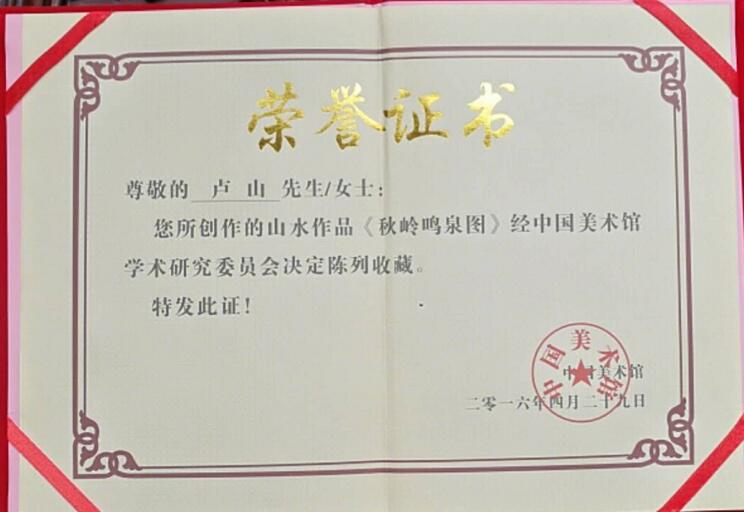 荣誉证书
尊敬的 卢 山 先生/女士：
您所创作的山水作品《秋岭鸣泉图》经中国美术馆
学术研究委员会决定陈列收藏。
特发此证！
中国美术馆
中国美术馆
二零一六年四月二十九日